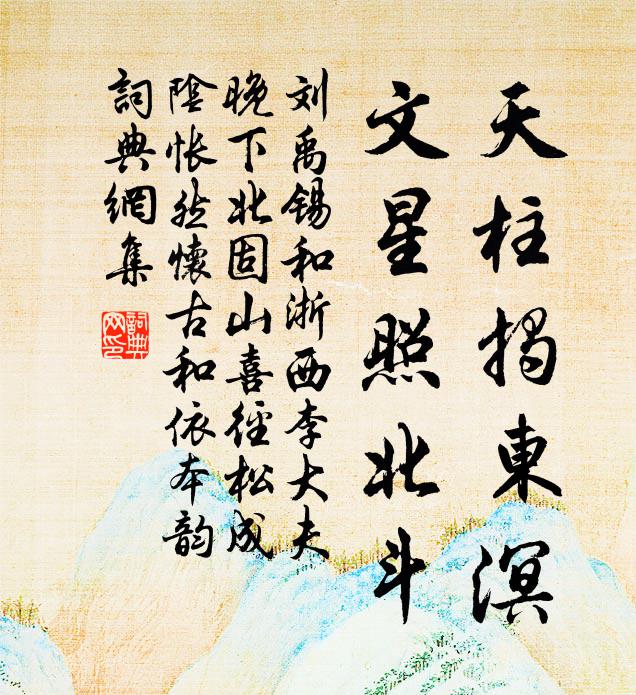 天柱揭東溟
文星照北斗
刘禹锡和浙西李大夫
晚下北固山喜徑松成
陰悵然懷古和依本韵
詞典網集
詞典
网印